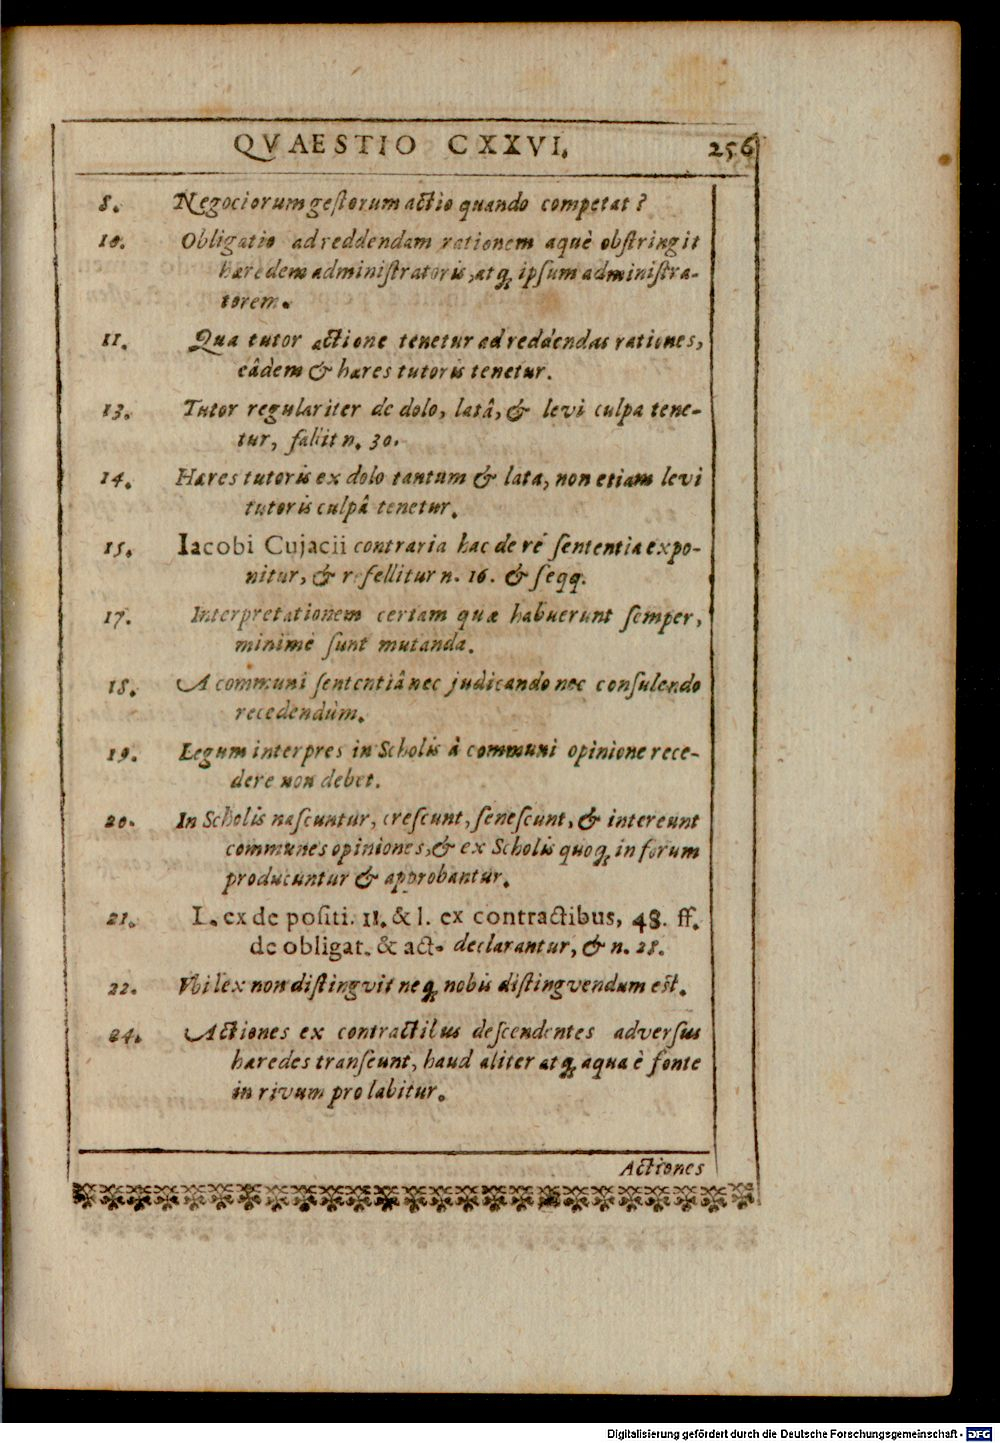 QVAESTIO CXXVI. 256
8. Negociorum gestorum actio quando competat?
10. Obligatio ad reddendam rationem aquè obstringit
hæredem administratoris, atq; ipsum administra-
torem.
11. Qua tutor actione tenetur ad reddendas rationes,
eâdem & hæres tutoris tenetur.
13. Tutor regulariter de dolo, latâ, & levi culpa tene-
tur, fallit n. 30.
14. Hæres tutoris ex dolo tantum & lata, non etiam levi
tutoris culpâ tenetur.
15. Iacobi Cujacii contraria hac de re sententia expo-
nitur, & refellitur n. 16. & seqq.
17. Interpretationem certam quæ habuerunt semper,
minimè sunt mutanda.
18. A communi sententiâ nec judicando nec consulendo
recedendum.
19. Legum interpres in Scholis à communi opinione rece-
dere non debet.
20. In Scholis nascuntur, crescunt, senescunt, & intereunt
communes opiniones, & ex Scholis quoq; in forum
producuntur & approbantur.
21. L. ex de positi. 11. & l. ex contractibus, 48. ff.
de obligat. & act. declarantur, & n. 28.
22. Vbi lex non distingvit neq; nobis distingvendum est.
24. Actiones ex contractibus descendentes adversus
hæredes transeunt, haud aliter atq; aqua è fonte
in rivum prolabitur.
Actiones
Digitalisierung gefördert durch die Deutsche Forschungsgemeinschaft - DFG